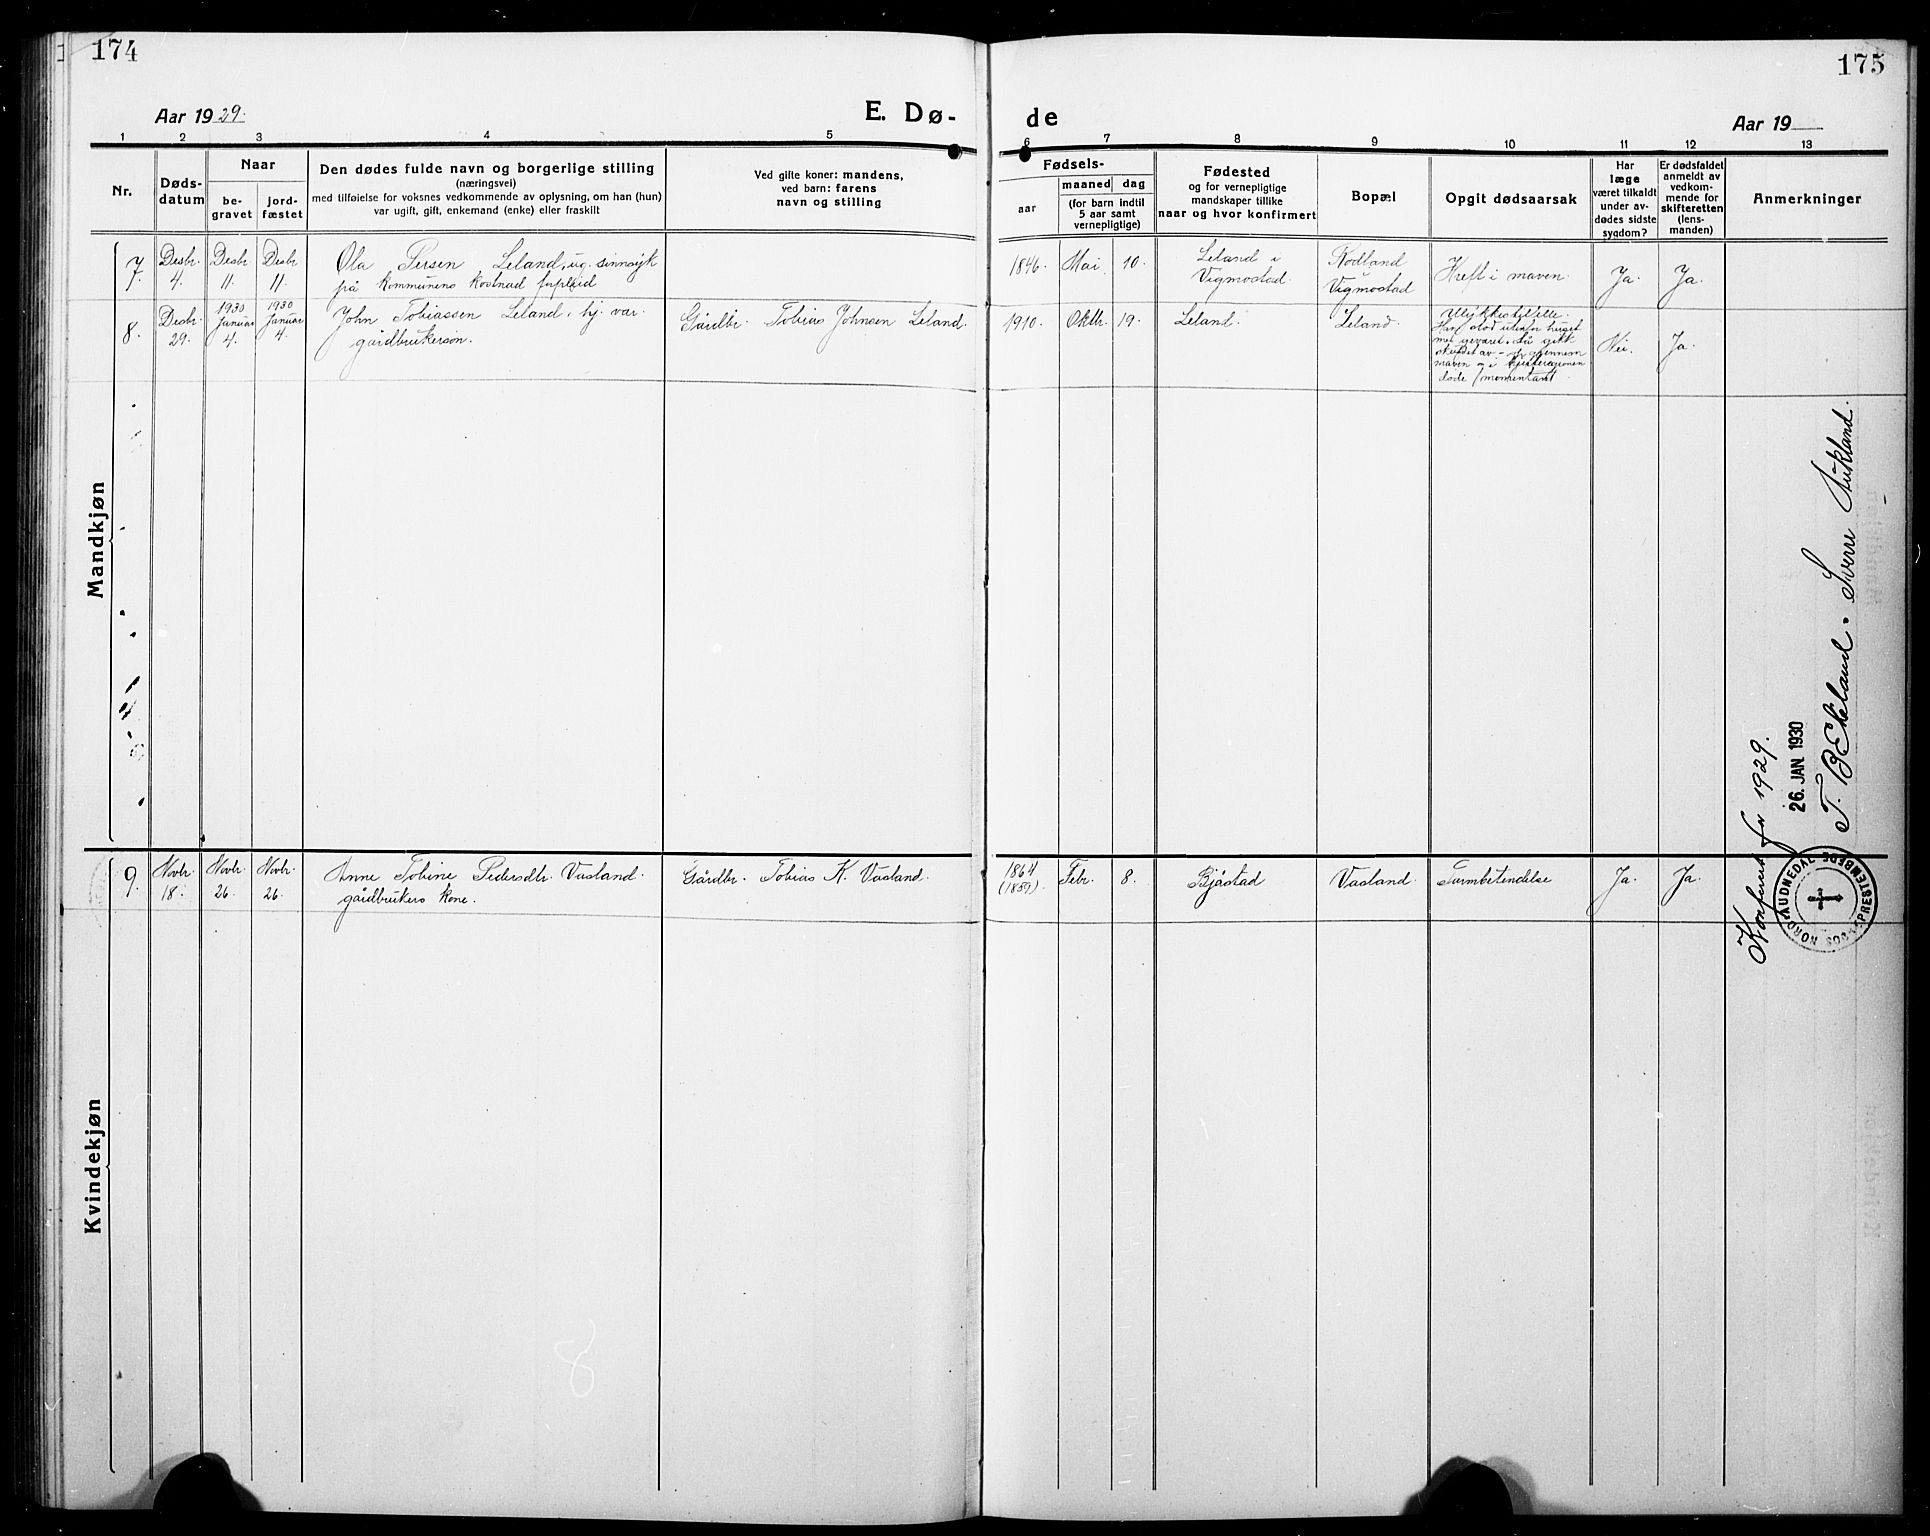 174
175
Aar 1929.
E. Dø-
de
Aar 19
1 2 3 4 5 6 7 8 9 10 11 12 13
Nr.
Døds-
datum
Naar
be-
gravet
jord-
fæstet
Den dødes fulde navn og borgerlige stilling
(næringsvei)
med tilføielse for voksnes vedkommende av oplysning, om han (hun)
var ugift, gift, enkemand (enke) eller fraskilt
Ved gifte koner: mandens,
ved barn: farens
navn og stilling
Fødsels-
aar
maaned dag
(for barn indtil
5 aar samt
vernepligtige)
Fødested
og for vernepligtige
mandskaper tillike
naar og hvor konfirmert
Bopæl
Opgit dødsaarsak
Har
læge
været tilkaldt
under av-
dødes sidste
sygdom?
Er dødsfaldet
anmeldt av
vedkom-
mende for
skifteretten
(lens-
manden)
Anmerkninger
Mandkjøn
7.
Desbr.
4.
Desbr
11.
Desbr
11.
Ola Persen Leland, ug. sinnsyk
på kommunens kostnad forpleid
1846. Mai 10.
Leland i
Vigmostad.
Rodland
Vigmostad
Kreft i maven.
Ja. Ja.
8.
Desbr.
29.
1930
Januar
4.
1930
Januar
4.
John Tobiassen Leland, hj. var.
gårdbrukersøn.
Gårdbr. Tobias Johnsen Leland.
1910. Oktbr. 19. Leland. Leland.
Ulykkestilfelle.
Han stod utenfor huset
med geværet. Så gikk
skuddet av - gjennem
maven og i hjerteregionen
døde momentant
Nei. Ja.
Kvindekjøn
9.
Novbr.
18.
Novbr.
26.
Novbr.
26.
Anne Tobine Pedersdtr. Vasland.
gårdbrukers kone.
Gårdbr. Tobias K. Vasland.
1864
(1859).
Febr. 8. Bjåstad Vasland. Tarmbetendelse
Ja. Ja.
Konferert for 1929.
26. JAN. 1930
T. B. Skeland. Sverre Aukland.
NORD-AUDNEDAL SOGNEPRESTEMBEDE